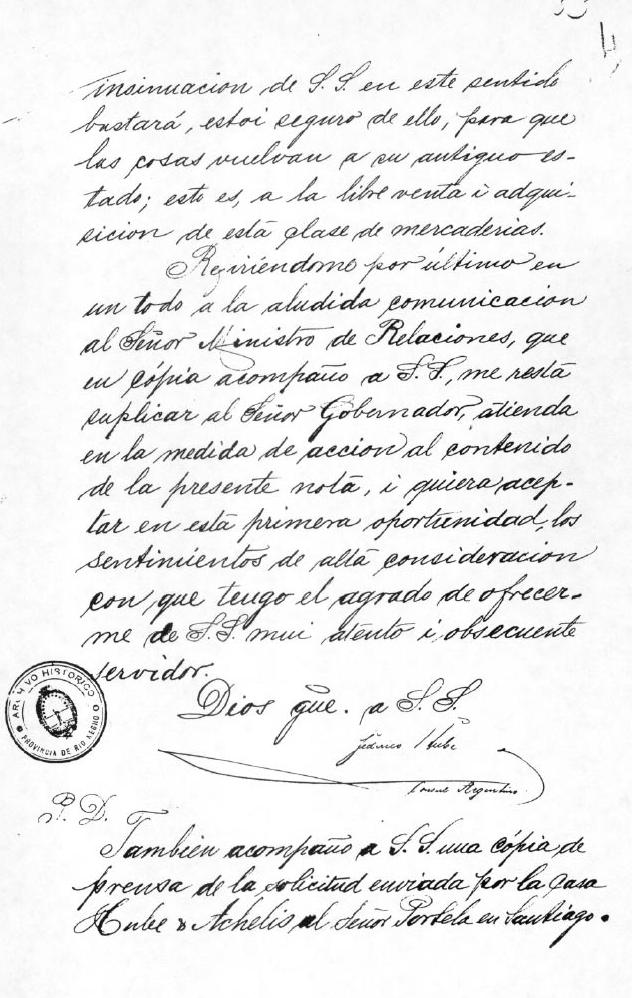 insinuacion de S. S. en este sentido
bastará, estoi seguro de ello, para que
las cosas vuelvan a su antiguo es-
tado; esto es, a la libre venta i adqui-
sicion de esta clase de mercaderias.
Refiriéndome por último en
un todo a la aludida comunicacion
al Señor Ministro de Relaciones, que
en cópia acompaño a S. S., me resta
suplicar al Señor Gobernador, atienda
en la medida de accion al contenido
de la presente nota, i quiera acep-
tar en esta primera oportunidad, los
sentimientos de alta consideracion
con que tengo el agrado de ofrecer-
me de S. S. mui atento i obsecuente
servidor.
Dios gue. a S. S.
Federico Hube
Consul Argentino
ARCHIVO HISTORICO
PROVINCIA DE RIO NEGRO
P. D.
Tambien acompaño a S. S. una cópia de
prensa de la solicitud enviada por la casa
Hube & Achelis al Señor Portela en Santiago.